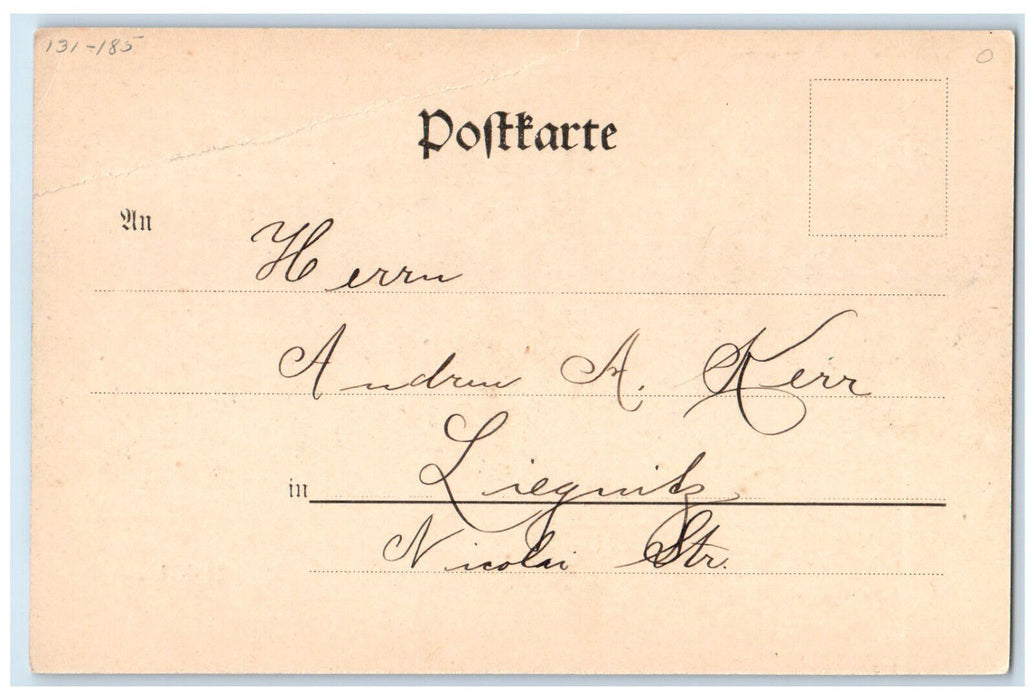 131-185
O
Postkarte
An
Herrn
Andrew A. Kerr
in Liegnitz
Nicolai Str.